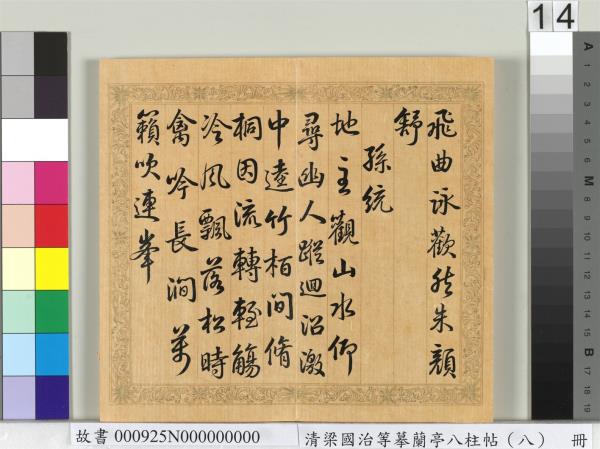 飛曲詠歡然朱顏
舒
孫統
地主觀山水仰
尋幽人蹤迴沼激
中逵竹栢間脩
桐因流轉輕觴
冷風飄落松時
禽吟長澗萬
籟吹連峯
14
A 1 2 3 4 5 6 M 8 9 10 11 12 13 14 15 B 17 18 19
故書 000925N000000000 清梁國治等摹蘭亭八柱帖(八) 冊